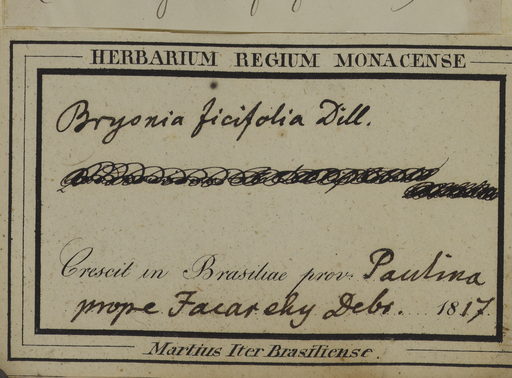 HERBARIUM REGIUM MONACENSE
Bryonia ficifolia Dill.
Crescit in Brasiliae prov. Paulina
prope Jacarehy Debr. 1817.
Martius Iter Brasiliense.